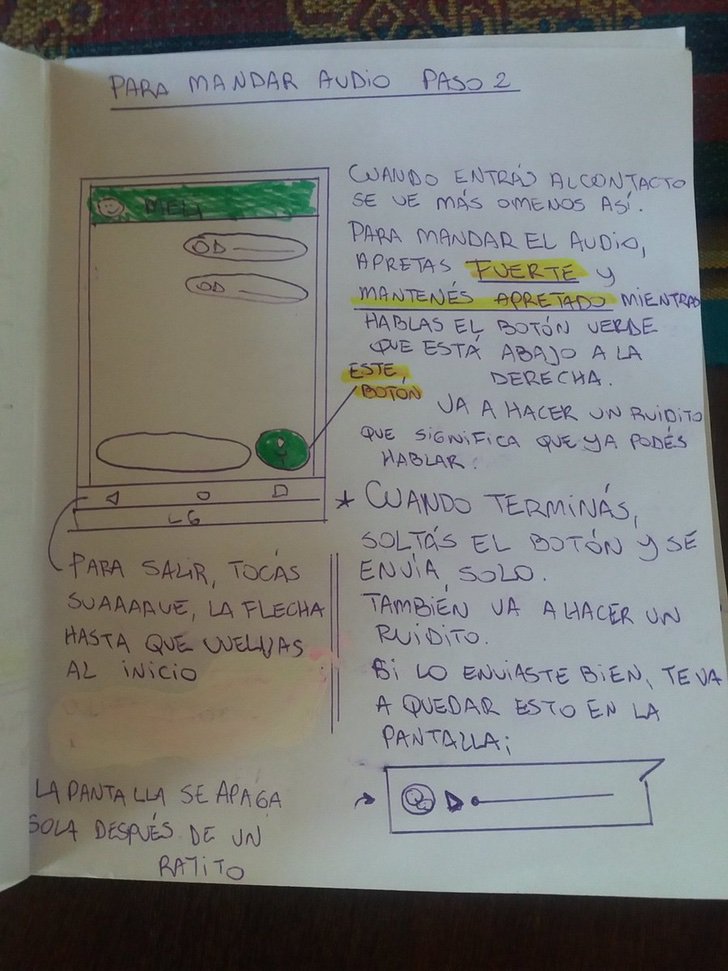 PARA MANDAR AUDIO PASO 2
MELI
LG
CUANDO ENTRÁS AL CONTACTO
SE VE MÁS O MENOS ASÍ.
PARA MANDAR EL AUDIO,
APRETAS FUERTE Y
MANTENÉS APRETADO MIENTRAS
HABLAS EL BOTÓN VERDE
QUE ESTÁ ABAJO A LA
DERECHA.
ESTE
BOTÓN
VA A HACER UN RUIDITO
QUE SIGNIFICA QUE YA PODÉS
HABLAR.
* CUANDO TERMINÁS,
SOLTÁS EL BOTÓN Y SE
ENVÍA SOLO.
TAMBIÉN VA A HACER UN
RUIDITO.
SI LO ENVIASTE BIEN, TE VA
A QUEDAR ESTO EN LA
PANTALLA;
PARA SALIR, TOCÁS
SUAAAAVE, LA FLECHA
HASTA QUE VUELVAS
AL INICIO
LA PANTALLA SE APAGA
SOLA DESPUÉS DE UN
RATITO